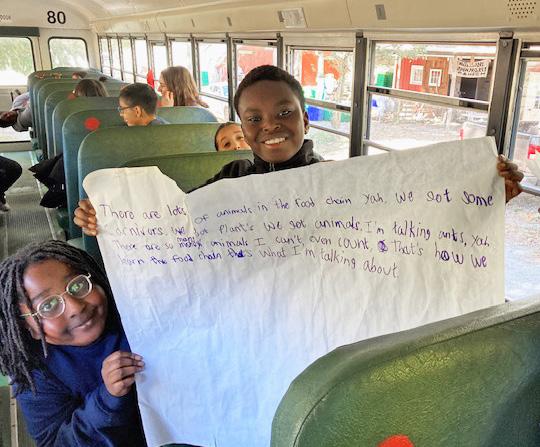 80
There are lots of animals in the food chain yah. We got some
Cornivors, we got plant's we got animals, I'm talking ants, yah,
There are so many animals I can't even count, That's how we
learn the food chain that's what I'm talking about.